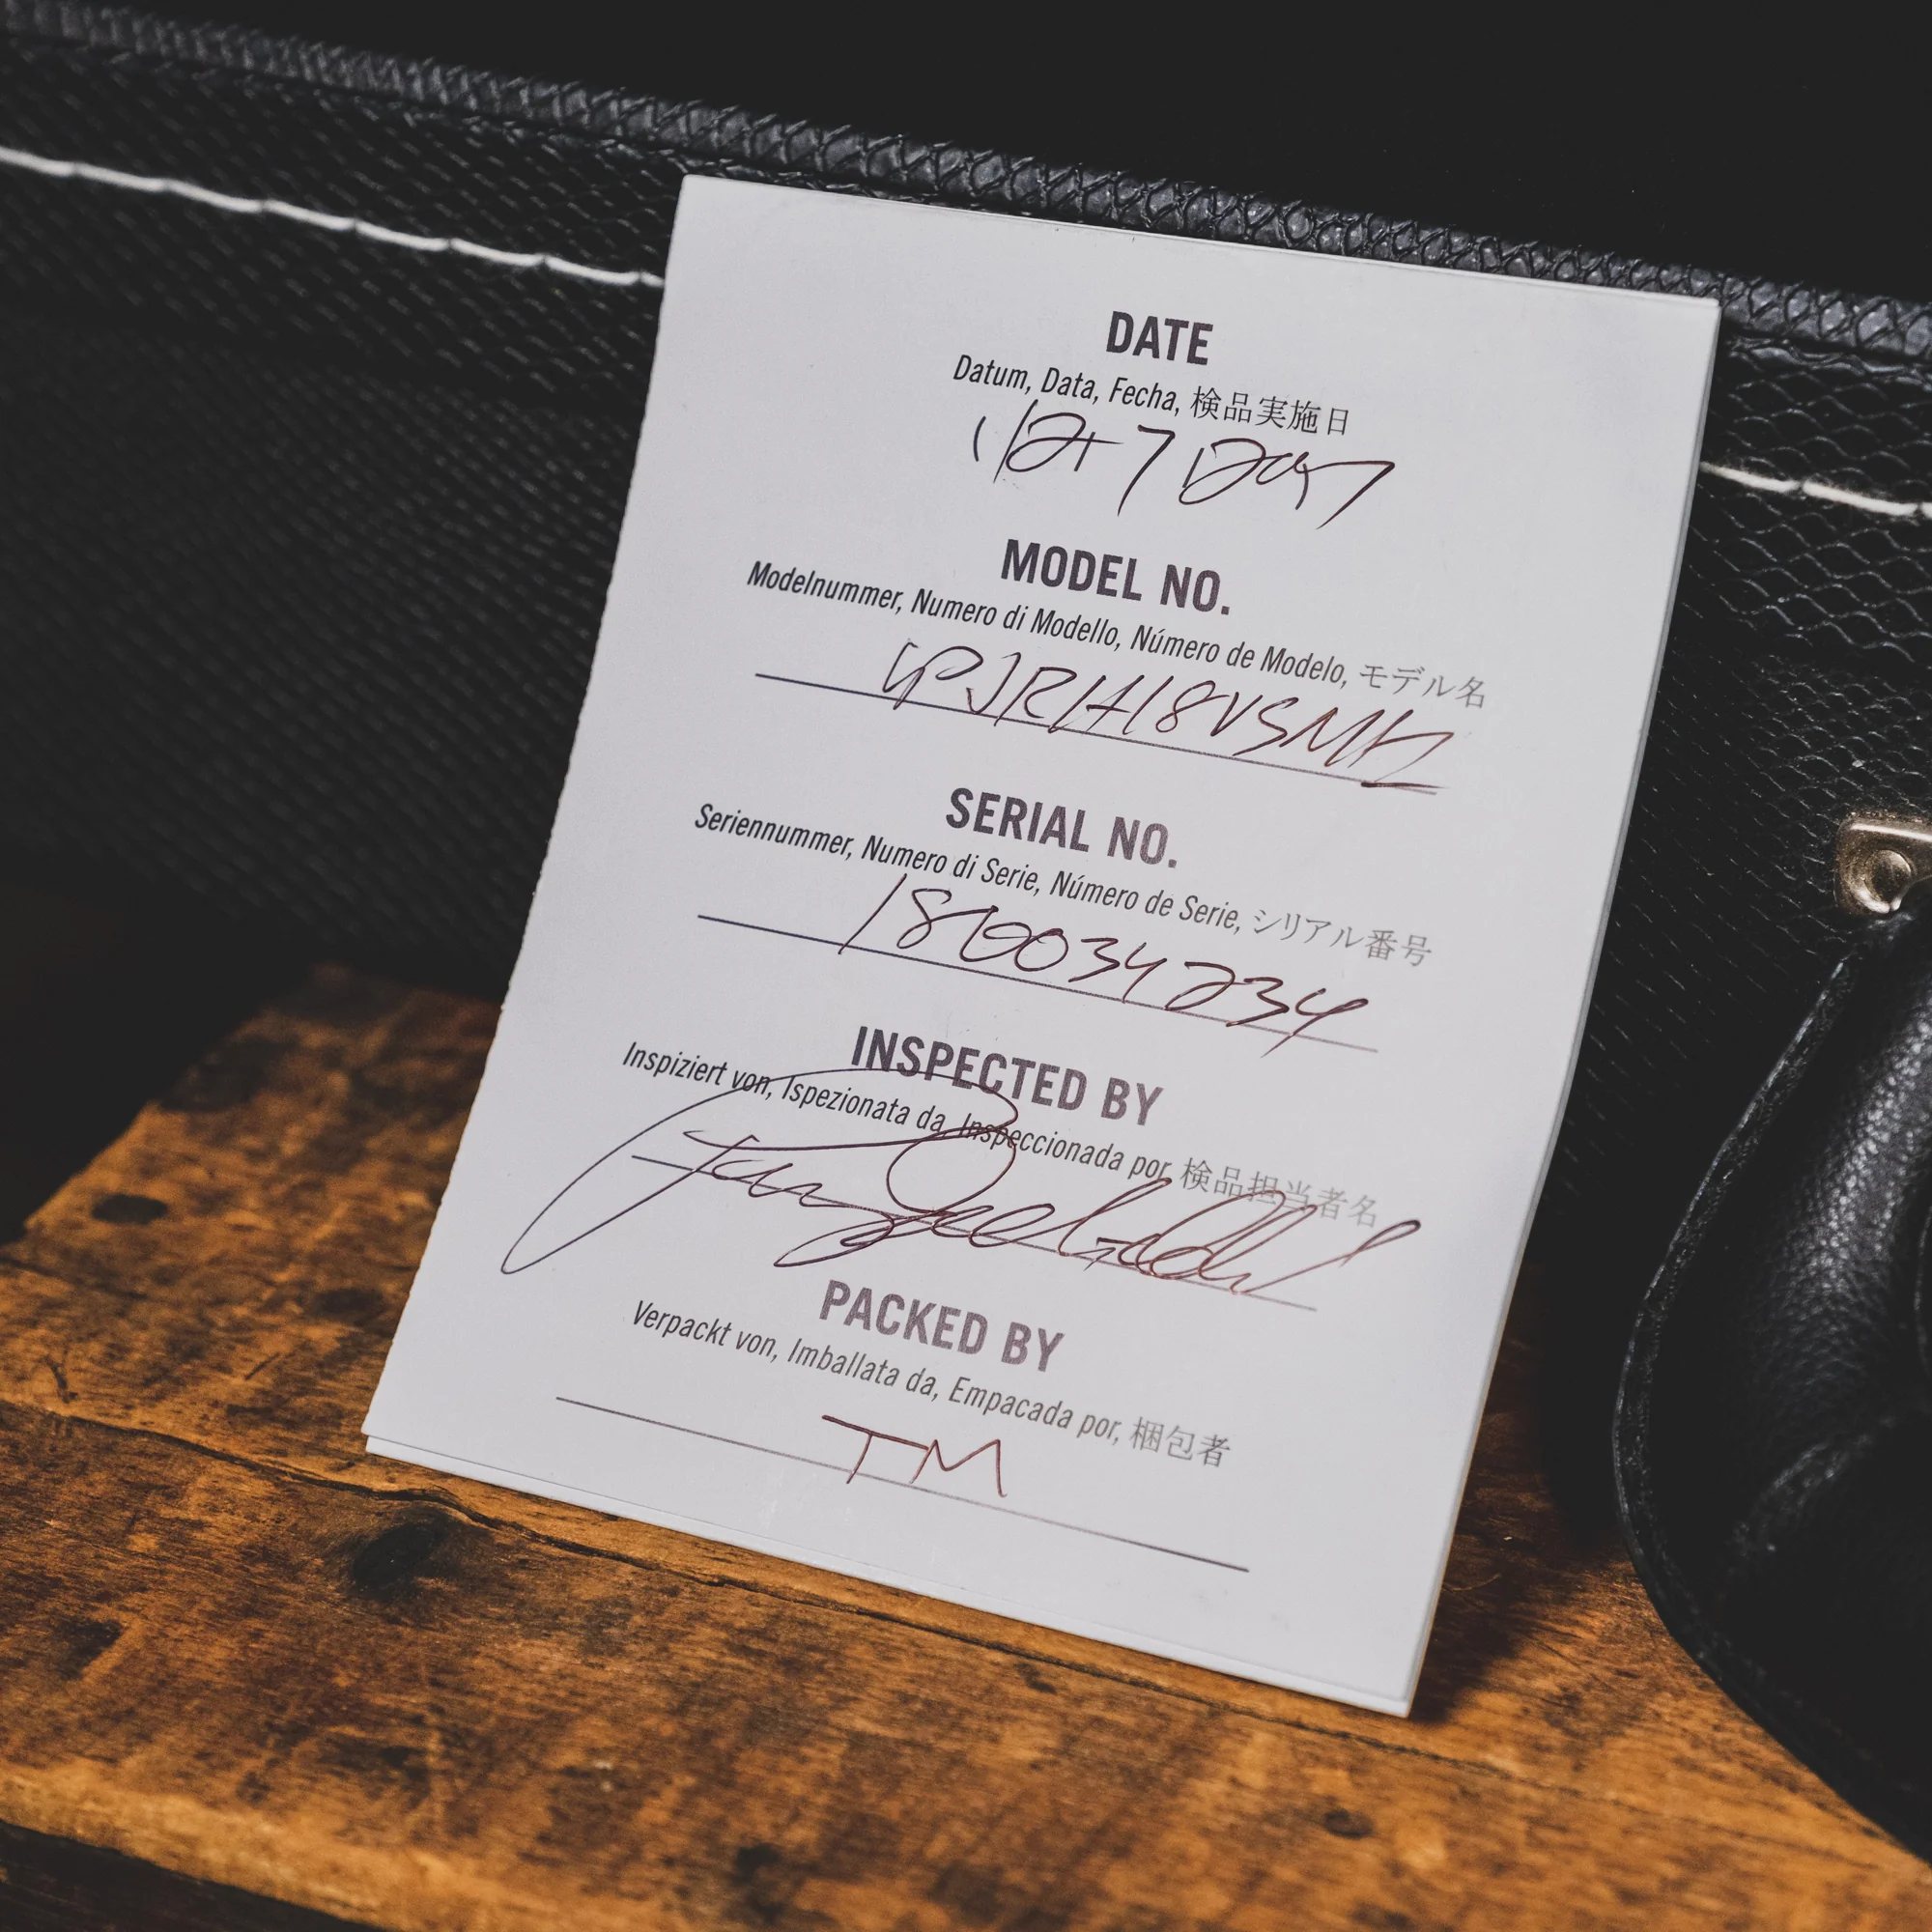 DATE
Datum, Data, Fecha, 検品実施日
MODEL NO.
Modelnummer, Numero di Modello, Número de Modelo, モデル名
LPJRH18VSMH
SERIAL NO.
Seriennummer, Numero di Serie, Número de Serie, シリアル番号
180034234
INSPECTED BY
Inspiziert von, Ispezionata da, Inspeccionada por, 検品担当者名
PACKED BY
Verpackt von, Imballata da, Empacada por, 梱包者
TM